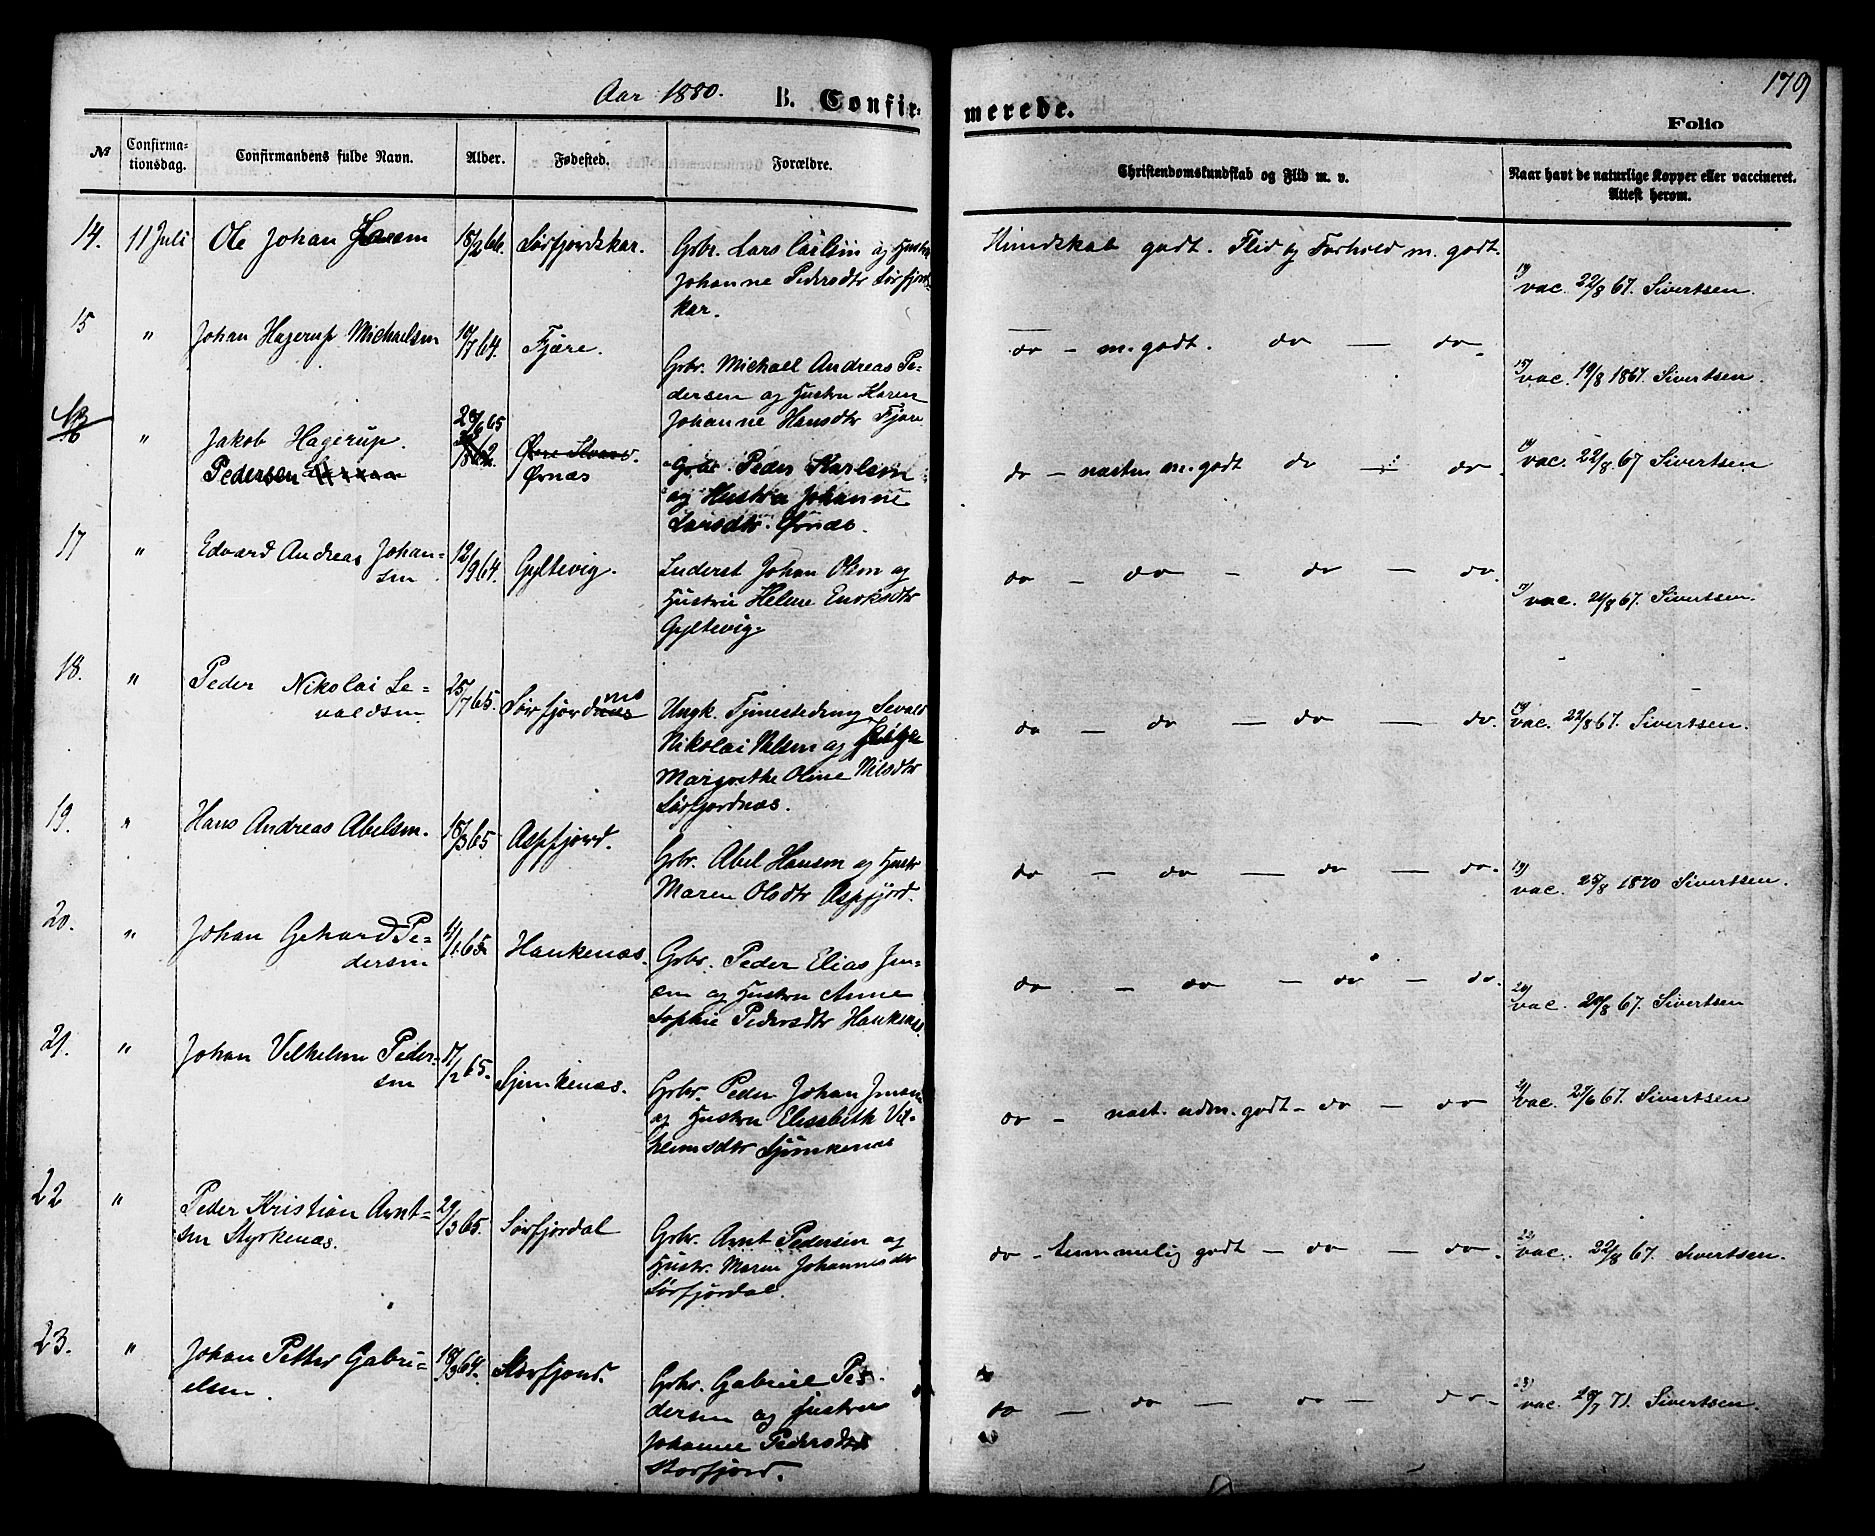 Aar 1880.
B. Confir-
merede.
179
Folio
No
Confirma-
tionsdag.
Confirmandens fulde Navn.
Alder.
Fødested.
Forældre.
Christendomskundskab og Flid m. v.
Naar havt de naturlige Kopper eller vaccineret.
Attest herom.
14. 11 Juli Ole Johan 18/2 66. Sørfjordskar.
Gbr. Lars Carlsen og Hustru
Johanne Pedersdtr Sørfjord-
skar.
Kundskab godt. Flid og Forhold m. godt.
14) vac. 22/8 67. Sivertsen.
15 " Johan Hagerup Michaelsen 10/7 64. Fjære.
Gbr. Michael Andreas Pe-
dersen og Hustru Karen
Johanne Hansdtr Fjære
do - m. godt. do — do.
15) vac. 19/8 1867. Sivertsen.
16 " Jakob Hagerup.
Pedersen
Ørnæs
Gbr. Peder Karlsen
og Hustru Johanne
Larsdtr. Ørnæs.
do - næsten m. godt do - do.
16) vac. 22/8 67 Sivertsen
17 " Edvard Andreas Johan-
sen 12/9 64. Gyltevig.
Inderst Johan Olsen og
Hustru Helene Enoksdtr
Gyltevig.
do - do - do - do.
17) vac. 21/8 67. Sivertsen.
18. " Peder Nikolai Se-
valdsen 25/7 65. Sørfjordnæs
Ungk. Tjenestedreng Sevald
Nikolai Nilsen og Pige
Margrethe Oline Nilsdtr
Sørfjordnæs.
do - do - do - do.
18) vac. 22/8 67. Sivertsen.
19. " Hans Andreas Abelsen. 18/3 65 Aspfjord.
Gbr. Abel Hansen og Hustr
Maren Olsdtr Aspfjord.
do - do - do - do.
19) vac. 25/8 1870 Sivertsen.
20. " Johan Gehard Pe-
dersen 4/1 65. Hankenæs.
Gbr. Peder Elias Jen-
sen og Hustru Anne
Sophie Pedersdtr Hankenæs
do - do - do - do.
20) vac. 20/8 67. Sivertsen
21. " Johan Vilhelm Peder-
sen 17/2 65. Sjunkenæs.
Gbr. Peder Johan Jensen
og Hustru Elisabeth Vil-
helmsdtr Sjunkenæs
do - næst. udm. godt - do - do
21) vac. 22/6 67. Sivertsen
22 " Peder Kristian Arnt-
sen Styrkenæs. 29/3 65. Sørfjordal
Gbr. Arnt Pedersen og
Hustr. Maren Johannesdtr
Sørfjordal.
do - temmelig godt - do - do.
22) vac. 22/8 67. Sivertsen.
23. " Johan Petter Gabri-
elsen. 18/3 64. Storfjord.
Gbr. Gabriel Pe-
dersen og Hustru
Johanne Pedersdtr
Storfjord.
do - do - do - do.
23) vac. 20/7 71. Sivertsen.